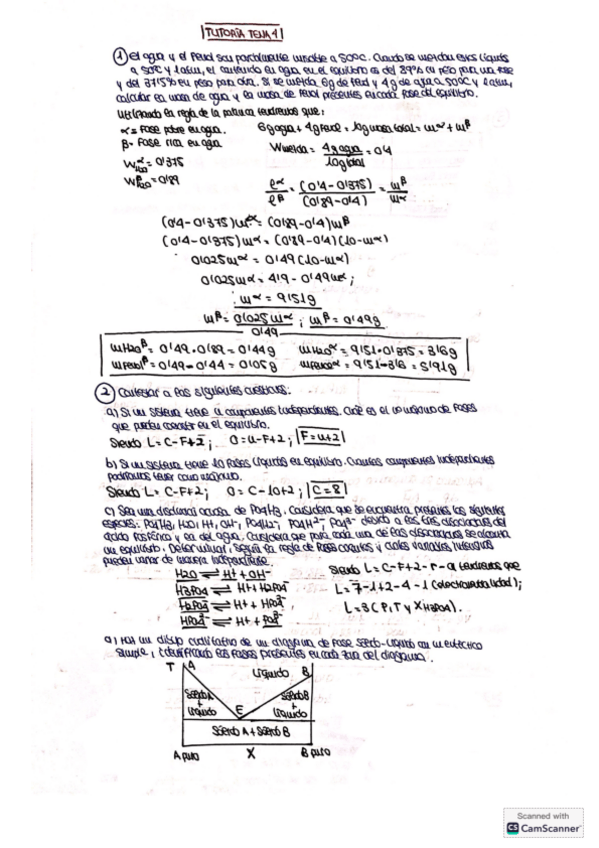 TUTORÍA TEMA 1
1) El agua y el fenol son parcialmente miscible a 50ºC. Cuando se mezclan estos líquidos
a 50ºC y 1 atm, el contenido en agua en el equilibrio es del 89% en peso para una fase
y del 37'5% en peso para otra. Si se mezcla 6g de fenol y 4g de agua a 50ºC y 1 atm,
calcular la masa de agua y la masa de fenol presentes en cada fase del equilibrio.
Utilizando la regla de la palanca tendremos que:
α = Fase pobre en agua.
β = Fase rica en agua
W H2O α = 0'375
W H2O β = 0'89
6g agua + 4g fenol = 10g masa total = mα + mβ
W mezcla = 4g agua / 10g total = 0'4
lα / lβ = (0'4-0'375) / (0'89-0'4) = mβ / mα
(0'4-0'375)mα = (0'89-0'4)mβ
(0'4-0'375)mα = (0'89-0'4)(10-mα)
0'025mα = 0'49(10-mα)
0'025mα = 4'9-0'49mα;
mα = 9'51g
mβ = 0'025mα / 0'49 ; mβ = 0'49g
mH2Oβ = 0'49·0'89 = 0'44g mH2Oα = 9'51·0'375 = 3'6g
mfenolβ = 0'49-0'44 = 0'05g mfenolα = 9'51-3'6 = 5'91g
2) Contestar a las siguientes cuestiones:
a) Si un sistema tiene n componentes independientes. Cuál es el máximo de fases
que pueden coexistir en el equilibrio.
Siendo L = C-F+2; 0 = n-F+2; F = n+2
b) Si un sistema tiene 10 fases líquidas en equilibrio. Cuantos componentes independientes
podríamos tener como mínimo.
Siendo L = C-F+2; 0 = C-10+2; C = 8
c) Sea una disolución acuosa de PO4H3. Considera que se encuentra presentes las siguientes
especies: PO4H3, H2O, H+, OH-, PO4H2-, PO4H2-, PO43- debido a las tres disociaciones del
ácido fosfórico y la del agua. Considera que para cada una de las disociaciones se alcanza
un equilibrio. Determinar, según la regla de fases cuantas y cuales variables intensivas
pueden variar de manera independiente.
H2O ⇌ H+ + OH-
H3PO4 ⇌ H+ + H2PO4-
H2PO4- ⇌ H+ + HPO42-
HPO42- ⇌ H+ + PO43-
Siendo L = C-F+2-r-a tendremos que
L = 7-1+2-4-1 (electroneutralidad);
L = 3 (P, T y XH3PO4).
d) Haz un dibujo cualitativo de un diagrama de fase sólido-líquido con un eutéctico
simple, identificando las fases presentes en cada zona del diagrama.
T
A
Líquido
B
Sólido A
+
Líquido
Sólido B
+
Líquido
E
Sólido A + Sólido B
A puro
X
B puro
Scanned with
CS CamScanner